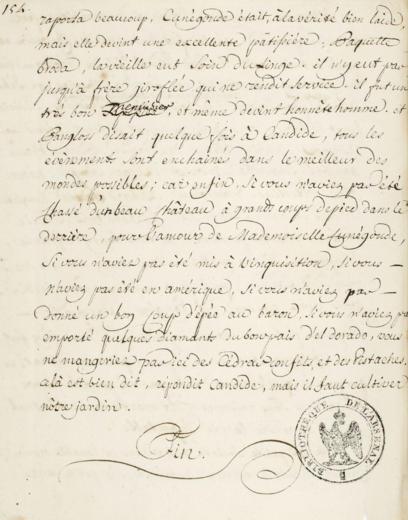 154.
raporta beaucoup, Cunégonde était, à la vérité bien laide,
mais elle devint une excellente pâtissière, Paquette
broda, la vieille eut soin du linge. il n'y eut pas
jusqu'à frère giroflée qui ne rendit service. il fut un
très bon menuisier, et même devint honnête homme. et
Panglos disait quelque fois à Candide, tous les
évènements sont enchaînés dans le meilleur des
mondes possibles; car enfin, si vous n'aviez pas été
chassé d'un beau château à grands coups de pied dans le
derrière, pour l'amour de Mademoiselle Cunégonde,
si vous n'aviez pas été mis à l'inquisition, si vous
n'aviez pas été en amérique, si vous n'aviez pas
donné un bon coup d'épée au baron, si vous n'aviez pas
emporté quelques diamants du bon pais d'el dorado, vous
ne mangeriez pas ici des Cédras confits, et des Pistaches.
celà est bien dit, répondit Candide, mais il faut cultiver
nôtre jardin.
Fin.
BIBLIOTHEQUE DE L'ARSENAL